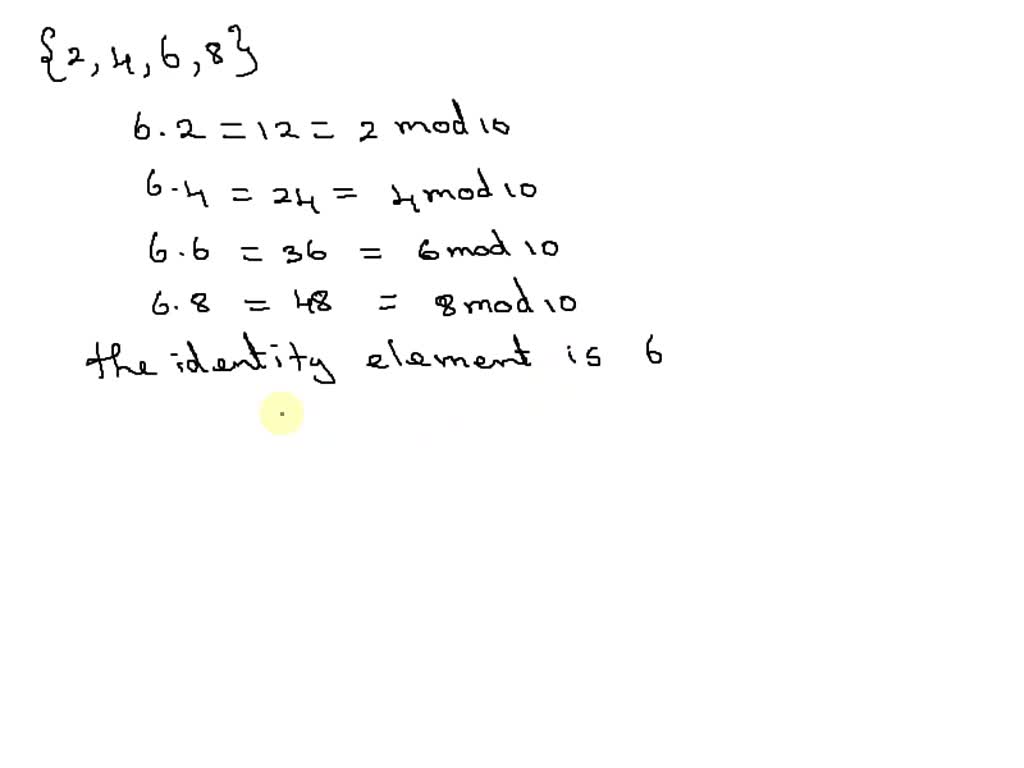 {2, 4, 6, 8}
6.2 = 12 = 2 mod 10
6.4 = 24 = 4 mod 10
6.6 = 36 = 6 mod 10
6.8 = 48 = 8 mod 10
the identity element is 6